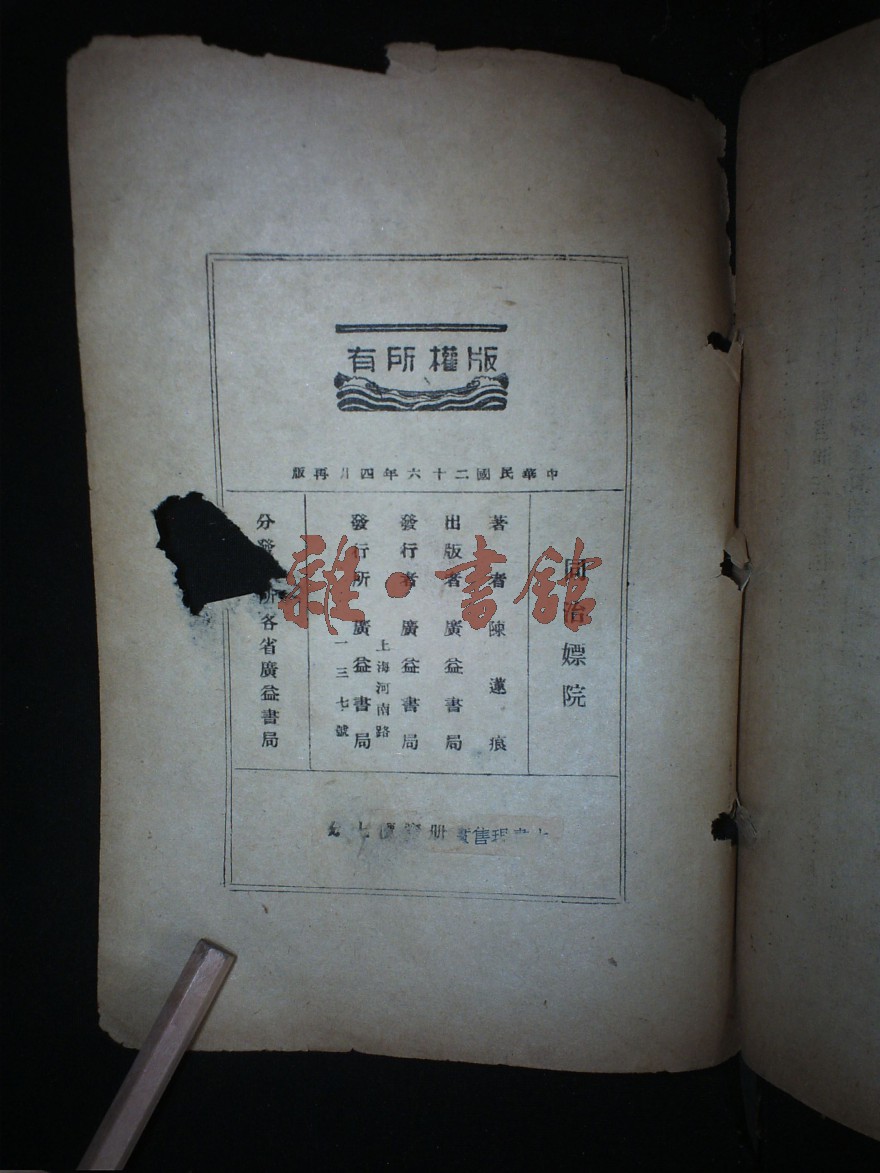 版權所有
中華民國二十六年四月再版
同治嫖院
著者 陳蓮痕
出版者 廣益書局
發行者 廣益書局
上海河南路
發行所 廣益書局
一三七號
分發 所各省廣益書局
雜·書館